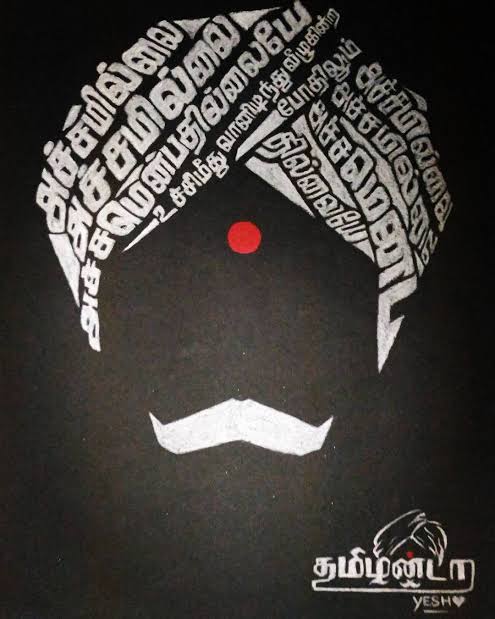 அச்சமில்லை
அச்சமில்லை
அச்சமென்பதில்லையே
உச்சிமீது வானிடிந்து வீழுகின்ற
போதிலும்
அச்சமில்லை
அச்சமில்லை
அச்சமென்ப
தில்லையே
தமிழன்டா
YESH